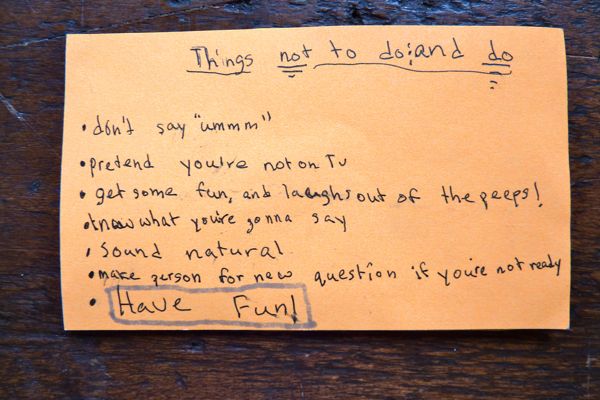 Things not to do; and do
• don't say "ummm"
• pretend you're not on Tv
• get some fun, and laughs out of the peeps!
• know what you're gonna say
• Sound natural
• make person for new question if you're not ready
• Have Fun!